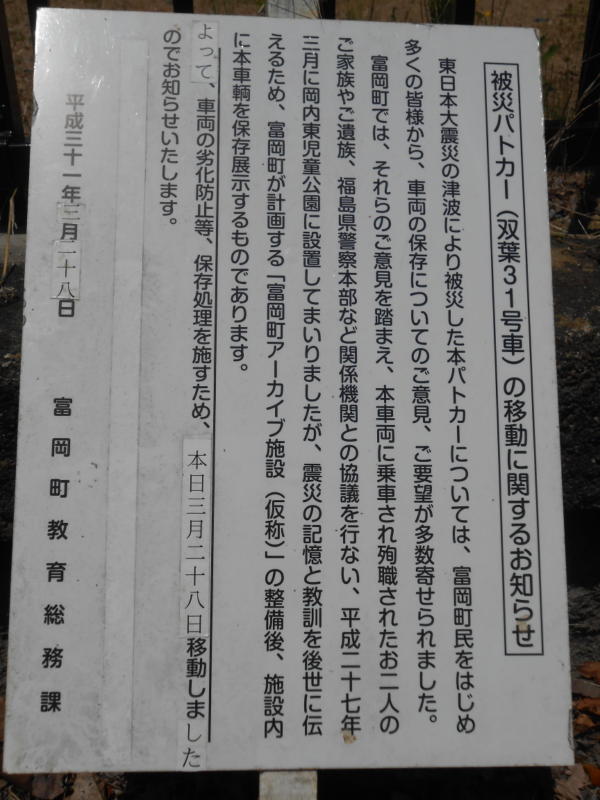 被災パトカー（双葉31号車）の移動に関するお知らせ
東日本大震災の津波により被災した本パトカーについては、富岡町民をはじめ
多くの皆様から、車両の保存についてのご意見、ご要望が多数寄せられました。
富岡町では、それらのご意見を踏まえ、本車両に乗車され殉職されたお二人の
ご家族やご遺族、福島県警察本部など関係機関との協議を行ない、平成二十七年
三月に岡内東児童公園に設置してまいりましたが、震災の記憶と教訓を後世に伝
えるため、富岡町が計画する「富岡町アーカイブ施設（仮称）」の整備後、施設内
に本車輌を保存展示するものであります。
よって、車両の劣化防止等、保存処理を施すため、本日三月二十八日移動しました
のでお知らせいたします。
平成三十一年三月二十八日
富岡町教育総務課